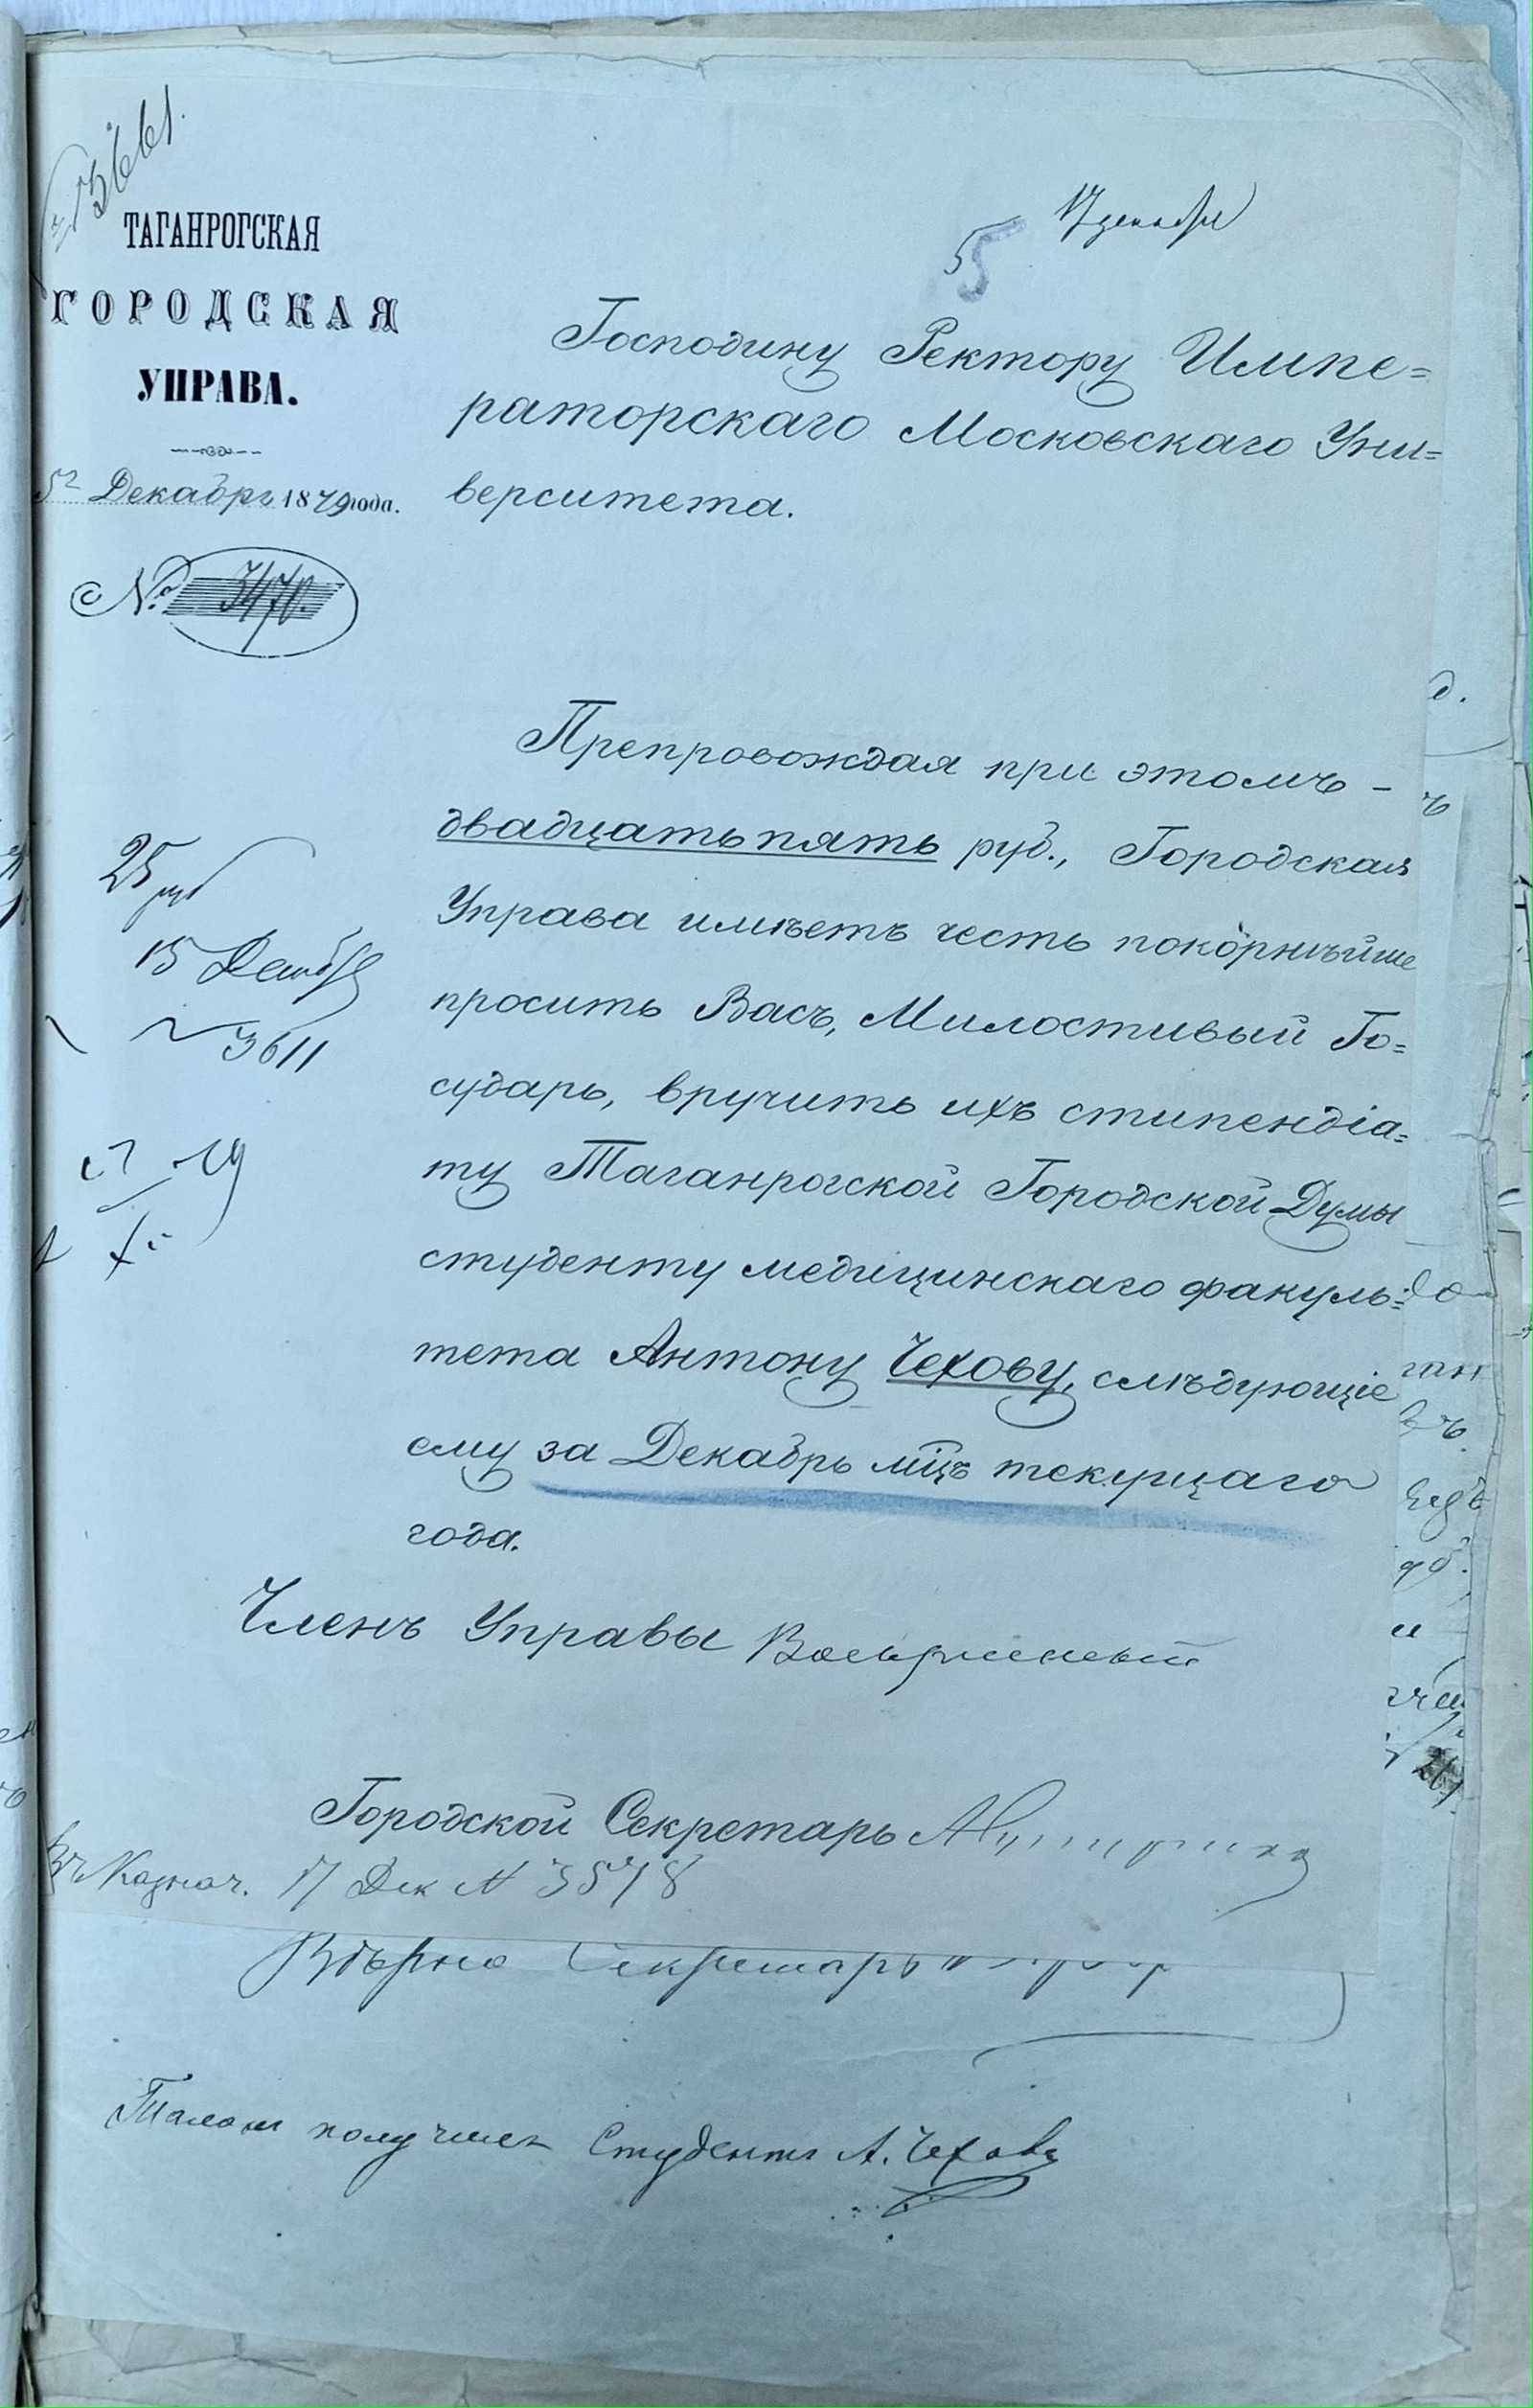 3661.
ТАГАНРОГСКАЯ
ГОРОДСКАЯ
УПРАВА.
Декабря 1879 года.
№ 3470.
17 декабря
55
Господину Ректору Импе=
раторскаго Московскаго Уни=
верситета.
Препровождая при этомъ –
двадцать пять руб., Городская
Управа имѣетъ честь покорнѣйше
просить Васъ, Милостивый Го=
сударь, вручить ихъ стипендіа=
ту Таганрогской Городской Думы
студенту медицинскаго факуль=
тета Антону Чехову, слѣдующіе
ему за Декабрь мцъ текущаго
года.
25 руб
15 Декабр
№ 3611
19
Членъ Управы
Городской Секретарь
Въ Казнач. 17 Дек № 3578
Вѣрно Секретарь
Талонъ получилъ Студентъ А. Чеховъ